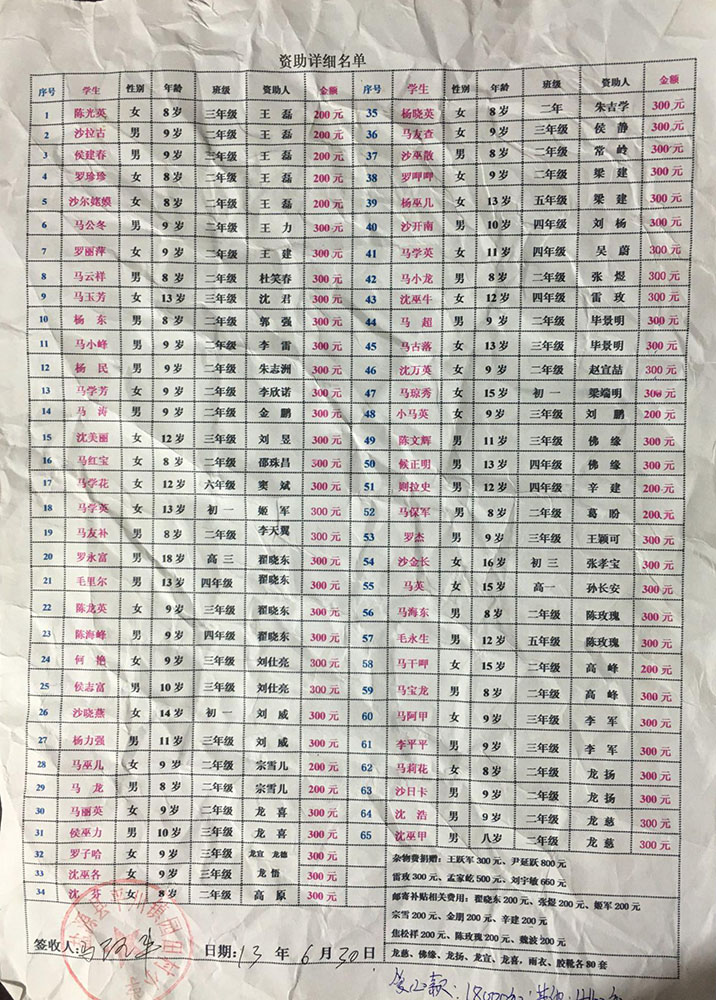 资助详细名单
序号 学生 性别 年龄 班级 资助人 金额 序号 学生 性别 年龄 班级 资助人 金额
1 陈光英 女 8岁 三年级 王磊 200元 35 杨晓英 女 8岁 二年 朱吉学 300元
2 沙拉古 男 9岁 二年级 王磊 200元 36 马友查 女 9岁 三年级 侯静 300元
3 侯建春 男 9岁 二年级 王磊 200元 37 沙巫散 男 8岁 二年级 常岭 300元
4 罗珍珍 女 8岁 二年级 王磊 200元 38 罗呷呷 女 9岁 二年级 梁建 300元
5 沙尔嫫 女 8岁 二年级 王磊 200元 39 杨巫儿 女 13岁 五年级 梁建 300元
6 马公冬 男 9岁 二年级 王力 300元 40 沙开南 男 10岁 四年级 刘杨 300元
7 罗丽萍 女 9岁 二年级 王建 300元 41 马学英 女 11岁 四年级 吴蔚 300元
8 马云祥 男 8岁 二年级 杜笑春 300元 42 马小龙 男 8岁 二年级 张煜 300元
9 马玉芳 女 13岁 三年级 沈君 300元 43 沈巫牛 女 12岁 四年级 雷玫 300元
10 杨东 男 8岁 二年级 郭强 300元 44 马超 男 9岁 二年级 毕景明 300元
11 马小峰 男 9岁 二年级 李雷 300元 45 马古落 女 13岁 三年级 毕景明 300元
12 杨民 男 9岁 二年级 朱志洲 300元 46 沈万英 女 9岁 二年级 赵宣喆 300元
13 马学芳 女 9岁 二年级 李欣诺 300元 47 马琼秀 女 15岁 初一 梁端明 300元
14 马涛 男 9岁 二年级 金鹏 300元 48 小马英 女 9岁 三年级 刘鹏 200元
15 沈美丽 女 12岁 三年级 刘昱 300元 49 陈文辉 男 11岁 三年级 佛缘 300元
16 马红宝 女 8岁 二年级 邵珠昌 300元 50 候正明 男 13岁 四年级 佛缘 300元
17 马学花 女 12岁 六年级 窦斌 300元 51 则拉史 男 12岁 四年级 辛建 200元
18 马学英 女 13岁 初一 姬军 300元 52 马保军 男 8岁 二年级 葛盼 200元
19 马友补 男 8岁 二年级 李天翼 300元 53 罗杰 男 9岁 三年级 王颖可 300元
20 罗永富 男 18岁 高三 翟晓东 300元 54 沙金长 女 16岁 初三 张孝宝 300元
21 毛里尔 男 13岁 四年级 翟晓东 300元 55 马英 女 15岁 高一 孙长安 300元
22 陈龙英 女 9岁 三年级 翟晓东 300元 56 马海东 男 8岁 二年级 陈玫瑰 300元
23 陈海峰 男 9岁 四年级 翟晓东 300元 57 毛永生 男 12岁 五年级 陈玫瑰 300元
24 何艳 女 9岁 三年级 刘仕亮 300元 58 马干呷 女 15岁 二年级 高峰 200元
25 侯志富 男 10岁 三年级 刘仕亮 300元 59 马宝龙 男 8岁 二年级 高峰 300元
26 沙晓燕 女 14岁 初一 刘威 300元 60 马阿甲 女 9岁 三年级 李军 300元
27 杨力强 男 11岁 三年级 刘威 300元 61 李平平 男 9岁 三年级 李军 300元
28 马巫儿 女 9岁 二年级 宗雪儿 200元 62 马莉花 女 8岁 二年级 龙扬 300元
29 马龙 男 8岁 二年级 宗雪儿 200元 63 沙日卡 男 9岁 二年级 龙扬 300元
30 马丽英 女 9岁 二年级 龙喜 300元 64 沈浩 男 9岁 二年级 龙慈 300元
31 侯巫力 男 10岁 三年级 龙喜 300元 65 沈巫甲 男 八岁 二年级 龙慈 300元
32 罗子哈 女 9岁 三年级 龙宣 龙德 300元
33 沈巫各 女 9岁 三年级 龙悟 300元
34 沈芬 女 8岁 二年级 高原 300元
杂物费捐赠：王跃军300元、尹延跃800元
雷玫300元、孟家屹500元、刘宇敏650元
邮寄补贴相关费用：翟晓东200元、张煜200元，姬军200元
宗雪200元、金朋200元、辛建200元
焦松祥200元、陈玫瑰200元、魏波200元
龙慈、佛缘、龙扬、龙宣、龙喜，雨衣、胶靴各80套
签收人： 日期：13年6月30日